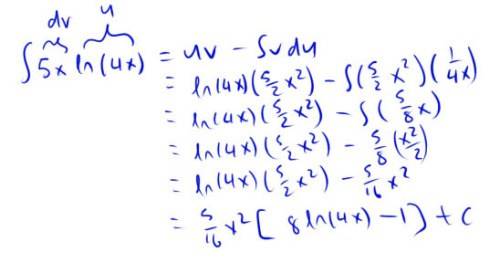 dv u
∫ 5x ln(4x) = uv - ∫vdu
= ln(4x)(5/2 x²) - ∫(5/2 x²)(1/4x)
= ln(4x)(5/2 x²) - ∫(5/8 x)
= ln(4x)(5/2 x²) - 5/8 (x²/2)
= ln(4x)(5/2 x²) - 5/16 x²
= 5/16 x² [ 8 ln(4x) - 1 ] + C